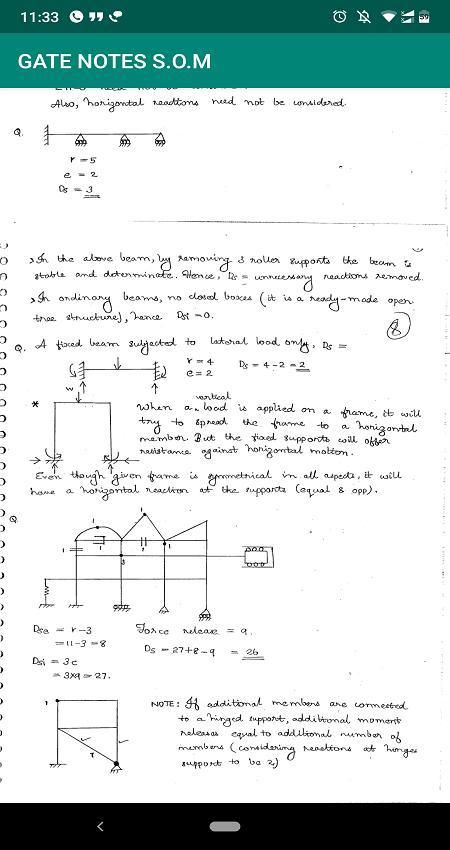 11:33
59
GATE NOTES S.O.M
Also, horizontal reactions need not be considered.
Q.
r = 5
e = 2
Ds = 3
→ In the above beam, by removing 3 roller supports the beam is
stable and determinate. Hence, Ds = unnecessary reactions removed.
→ In ordinary beams, no closed boxes (it is a ready-made open
tree structure), hence Dsi = 0.
8
Q. A fixed beam subjected to lateral load only, Ds =
r = 4
e = 2
Ds = 4 - 2 = 2
W
*
vertical
When a load is applied on a frame, it will
try to spread the frame to a horizontal
member. But the fixed supports will offer
resistance against horizontal motion.
Even though given frame is symmetrical in all aspects, it will
have a horizontal reaction at the supports (equal & opp).
Q
1
1
1
1
1
3
Dse = r - 3
= 11 - 3 = 8
Force release = 9.
Ds = 27 + 8 - 9 = 26
Dsi = 3c
= 3x9 = 27.
1
NOTE: If additional members are connected
to a hinged support, additional moment
releases equal to additional number of
members (considering reactions at hinge
support to be 2)